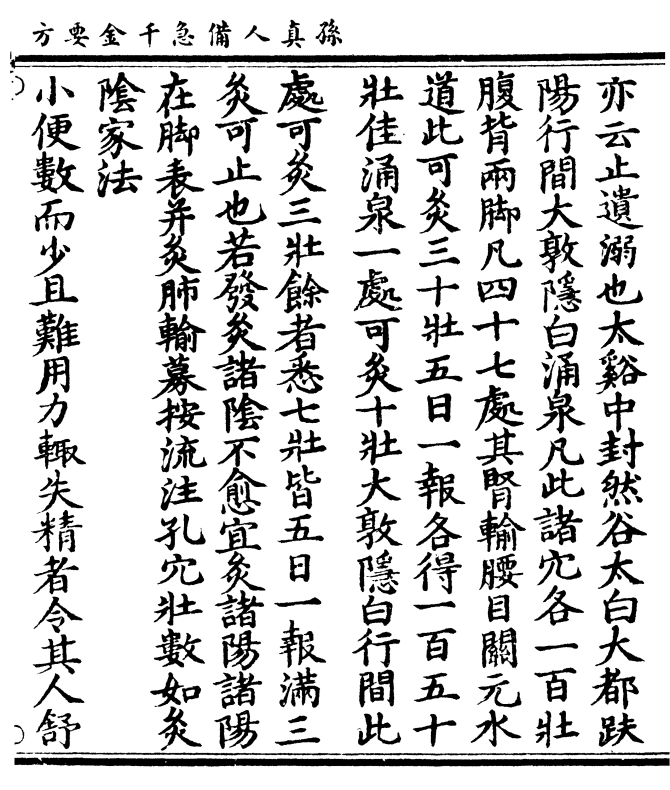 孫真人備急千金要方
亦云止遺溺也太谿中封然谷太白大都趺
陽行間大敦隱白涌泉凡此諸穴各一百壯
腹背兩脚凡四十七處其腎輸腰目關元水
道此可灸三十壯五日一報各得一百五十
壯佳涌泉一處可灸十壯大敦隱白行間此
處可灸三壯餘者悉七壯皆五日一報滿三
灸可止也若發灸諸陰不愈宜灸諸陽諸陽
在脚表并灸肺輸募按流注孔穴壯數如灸
陰家法
小便數而少且難用力輙失精者令其人舒